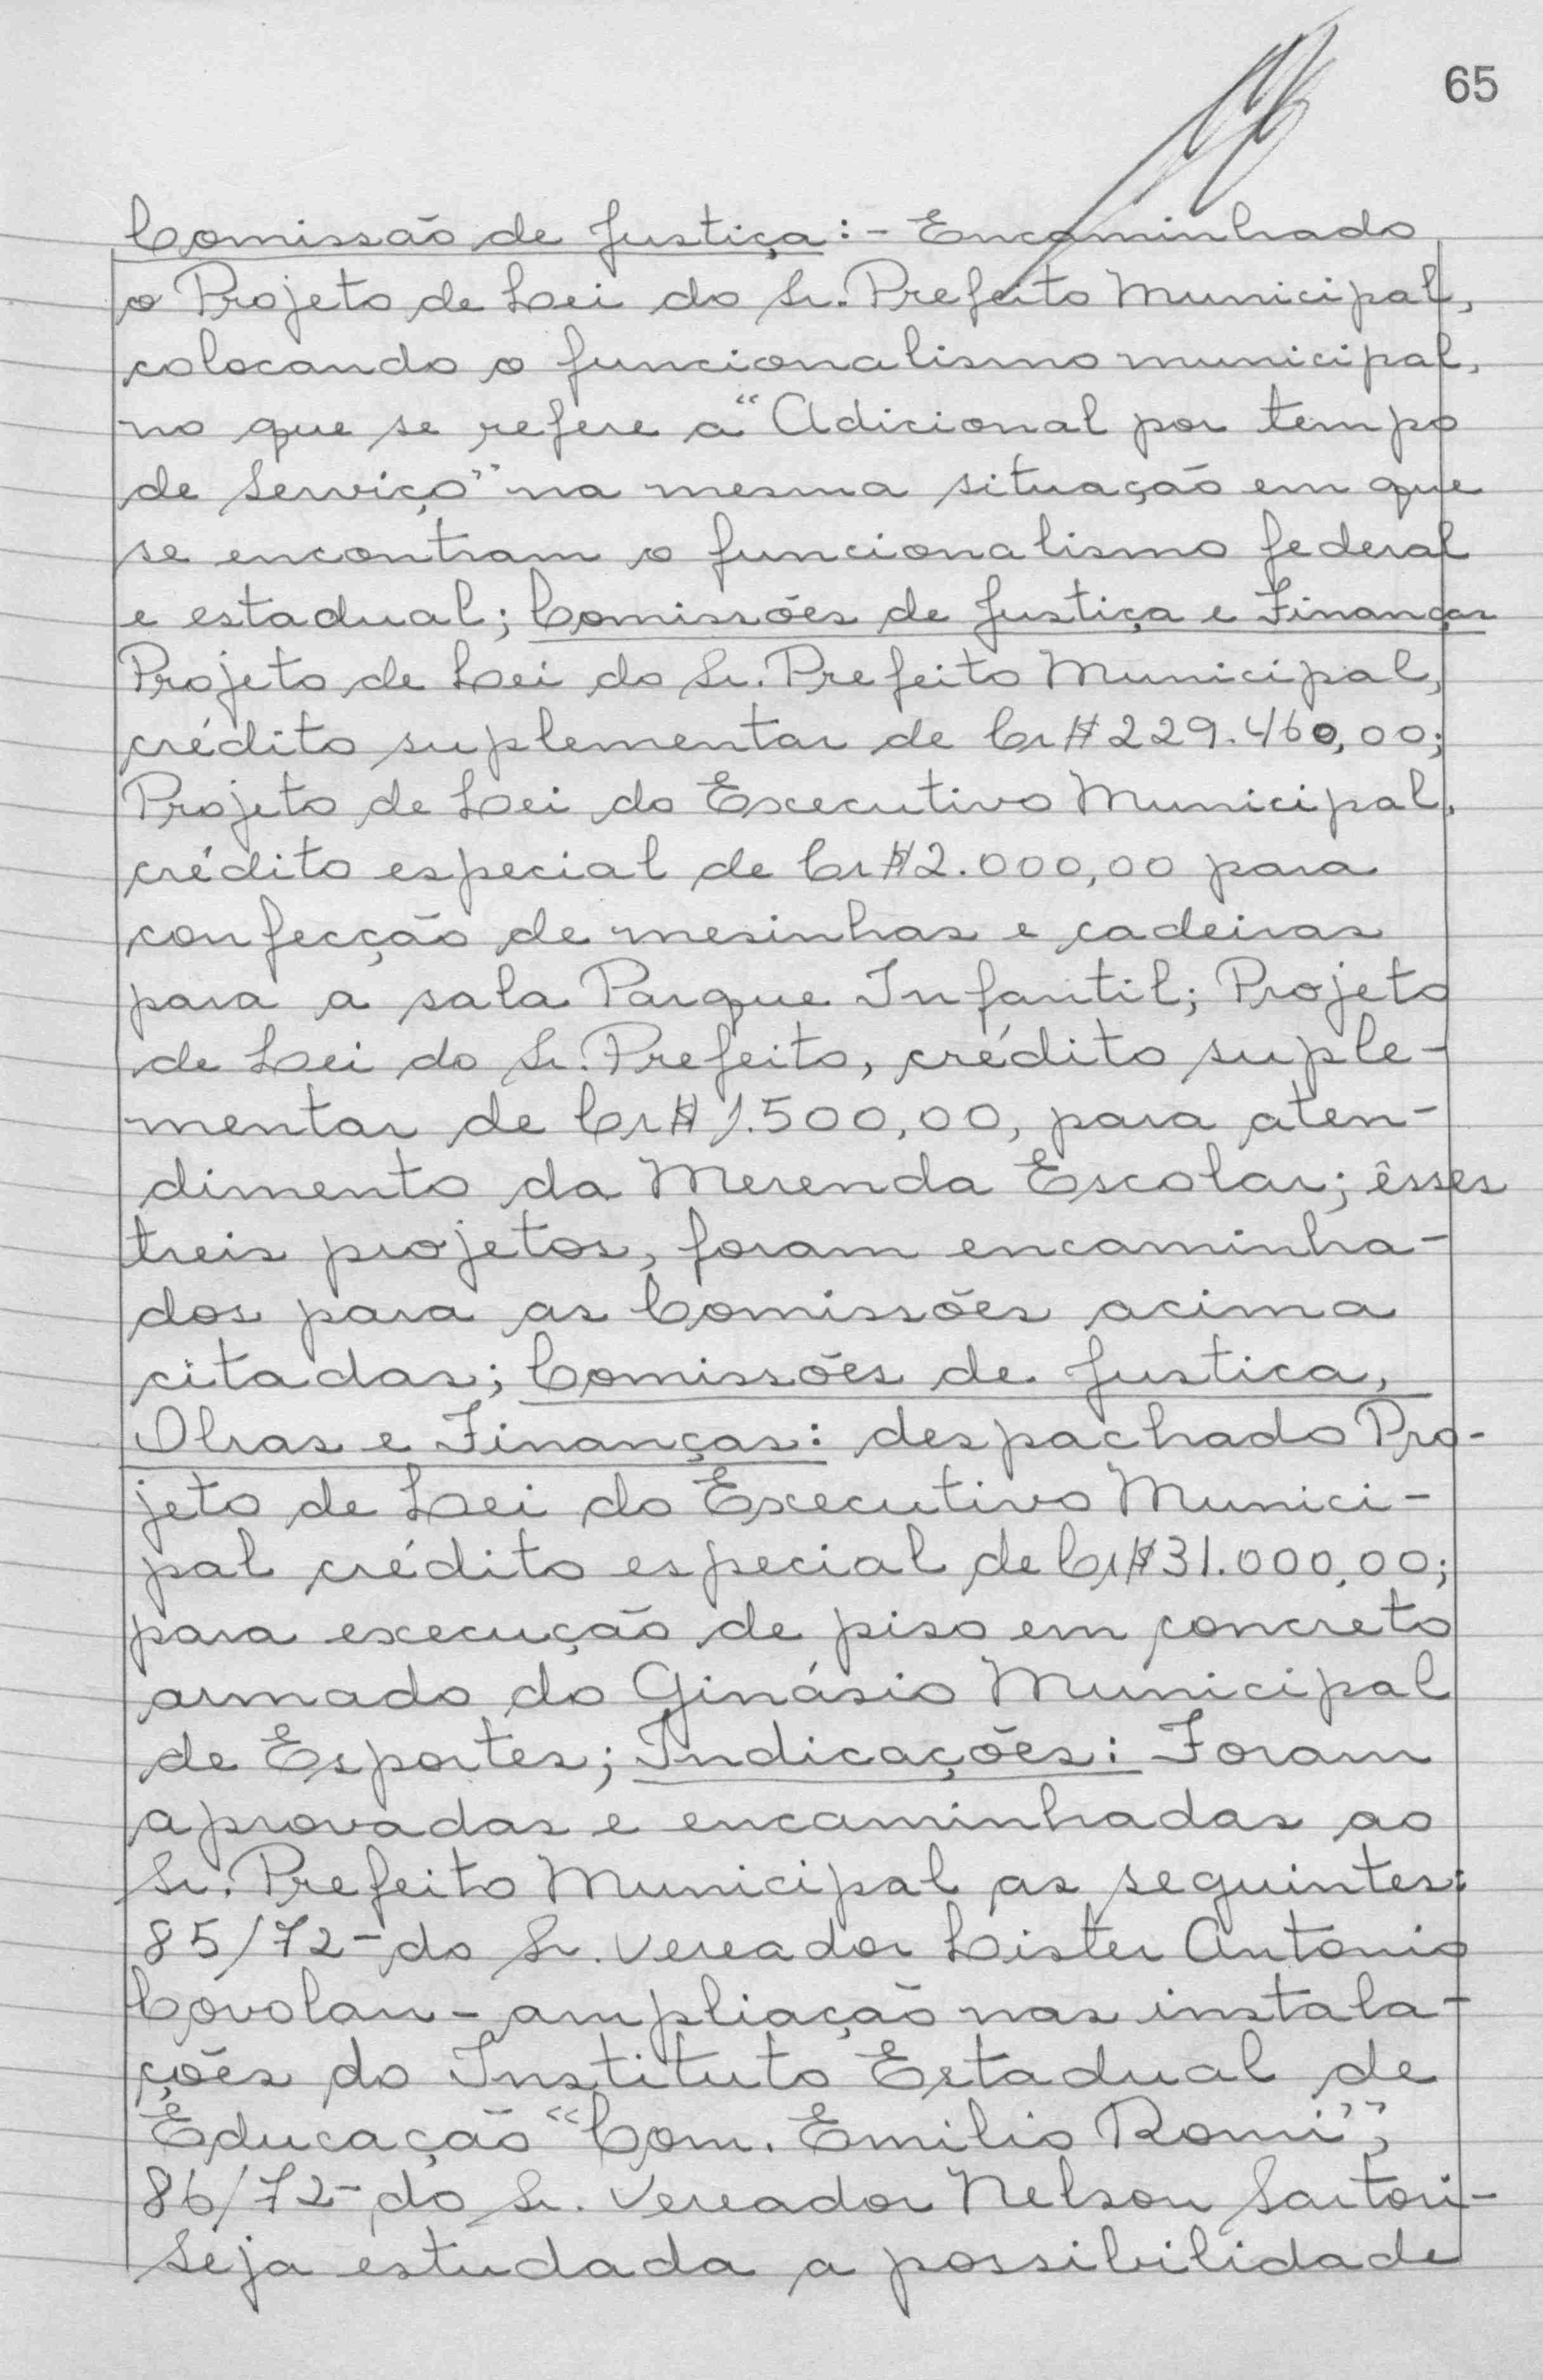 65
Comissão de Justiça:- Encaminhado
o Projeto de Lei do Sr. Prefeito Municipal,
colocando o funcionalismo municipal,
no que se refere a "Adicional por tempo
de Serviço" na mesma situação em que
se encontram o funcionalismo federal
e estadual; Comissões de Justiça e Finanças
Projeto de Lei do Sr. Prefeito Municipal,
crédito suplementar de Cr$229.460,00;
Projeto de Lei do Executivo Municipal,
crédito especial de Cr$2.000,00 para
confecção de mesinhas e cadeiras
para a sala Parque Infantil; Projeto
de Lei do Sr. Prefeito, crédito suple-
mentar de Cr$1.500,00, para aten-
dimento da Merenda Escolar; êsses
treis projetos, foram encaminha-
dos para as Comissões acima
citadas; Comissões de Justica,
Obras e Finanças: despachado Pro-
jeto de Lei do Executivo Munici-
pal crédito especial de Cr$31.000,00;
para execução de piso em concreto
armado do Ginásio Municipal
de Esportes; Indicações: Foram
aprovadas e encaminhadas ao
Sr. Prefeito Municipal as seguintes:
85/72-do Sr. Vereador Lister Antonio
Covolan-ampliação nas instala-
ções do Instituto Estadual de
Educação "Com. Emilio Romi",
86/72-do Sr. Vereador Nelson Sartori-
Seja estudada a possibilidade